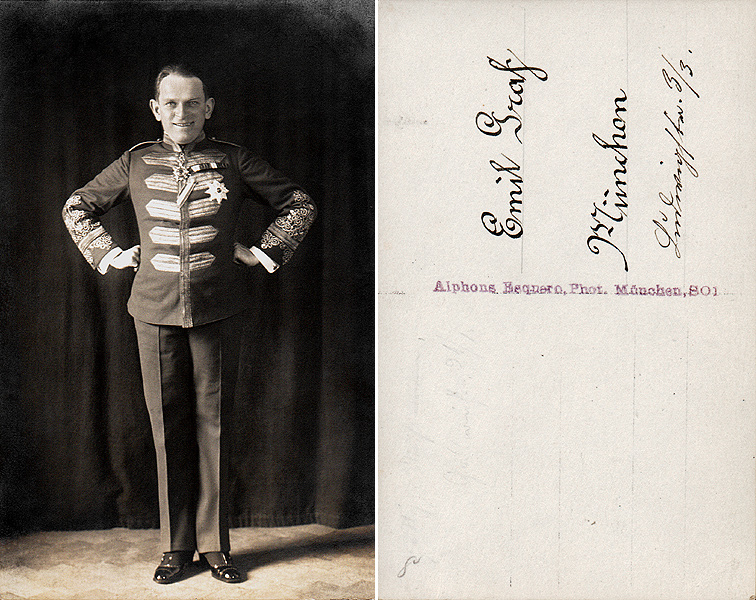 Emil Graf
München
Ludwigstr. 3/3.
Alphons Esquero, Phot. München, SO1